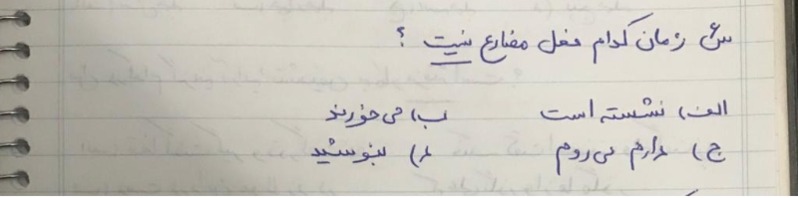 س۶ زمان کدام فعل مضارع نیست ؟
الف) نشسته است ب) می خورند
ج) دارم می روم د) بنوشید